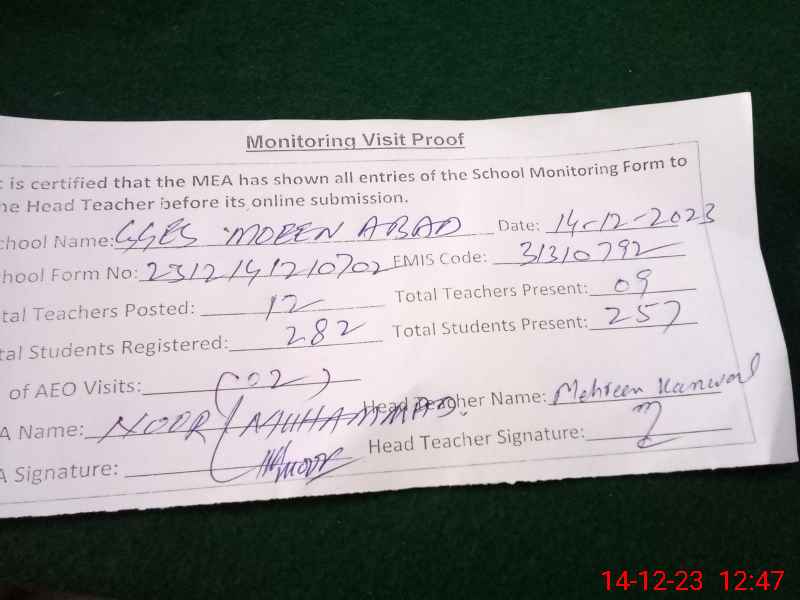 Monitoring Visit Proof
t is certified that the MEA has shown all entries of the School Monitoring Form to
he Head Teacher before its online submission.
chool Name: GGES MOEEN ABAD Date: 14-12-2023
hool Form No: 2312141210702 EMIS Code: 31310792
tal Teachers Posted: 12 Total Teachers Present: 09
tal Students Registered: 282 Total Students Present: 257
of AEO Visits: (02)
Head Teacher Name: Mehreen Kanwal
A Name: NOOR MUHAMMAD
Head Teacher Signature:
A Signature:
14-12-23 12:47